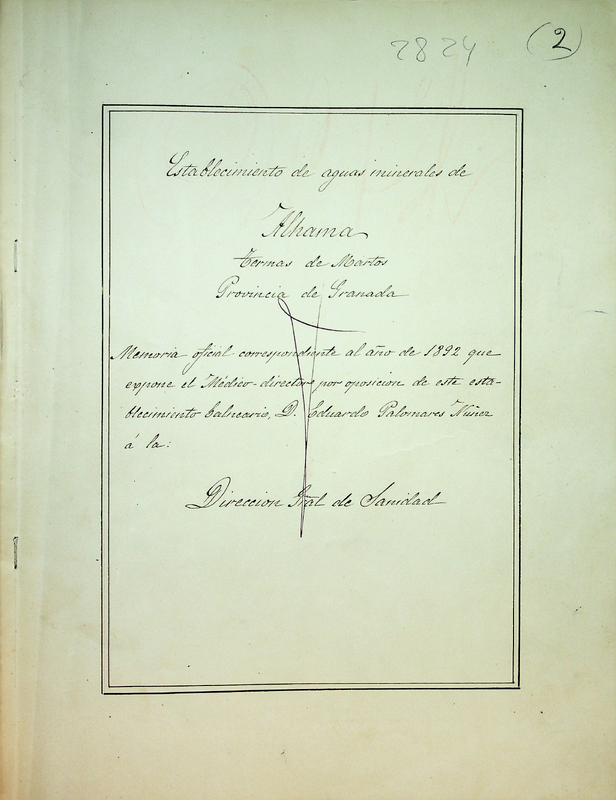 2824 (2)
Establecimiento de aguas minerales de
Alhama
termas de Martos
Provincia de Granada
Memoria oficial correspondiente al año de 1892 que
expone el Médico-director por oposicion de este esta-
blecimiento balneario, D. Eduardo Palomares Núñez
á la:
Direccion Gral de Sanidad